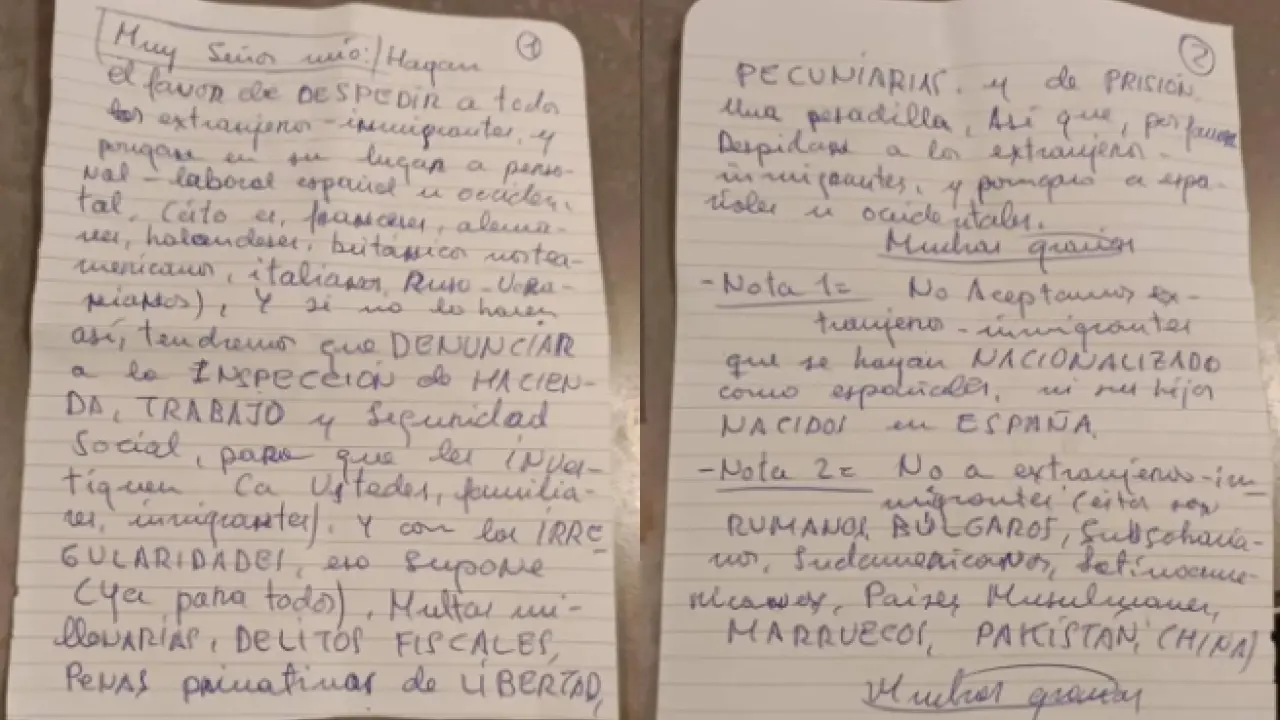 1
Muy Señor mío:/Hagan
el favor de DESPEDIR a todos
los extranjeros-inmigrantes, y
pongan en su lugar a perso-
nal-laboral español u occiden-
tal. (Esto es, franceses, alema-
nes, holandeses, británicos nortea-
mericanos, italianos, Ruso-Ucra-
nianos), Y si no lo hacen
así, tendremos que DENUNCIAR
a la INSPECCIÓN de HACIEN-
DA, TRABAJO y Seguridad
Social, para que les inves-
tiguen (a Ustedes, familia-
res, inmigrantes). Y con las IRRE-
GULARIDADES, eso supone
(Ya para todos), Multas mi-
llonarias, DELITOS FISCALES,
PENAS privativas de LIBERTAD,
2
PECUNIARIAS. y de PRISIÓN.
Una pesadilla, Así que, por favor
Despidan a los extranjeros-
inmigrantes, y pongan a espa-
ñoles u occidentales.
Muchas gracias
-Nota 1= No Aceptamos ex-
tranjeros-inmigrantes
que se hayan NACIONALIZADO
como españoles, ni sus hijos
NACIDOS en ESPAÑA.
-Nota 2= No a extranjeros-in-
migrantes (estos son
RUMANOS, BÚLGAROS, Subsaharia-
nos, Sudamericanos, Latinoame-
ricanos, Países Musulmanes,
MARRUECOS, PAKISTÁN, CHINA)
Muchas gracias